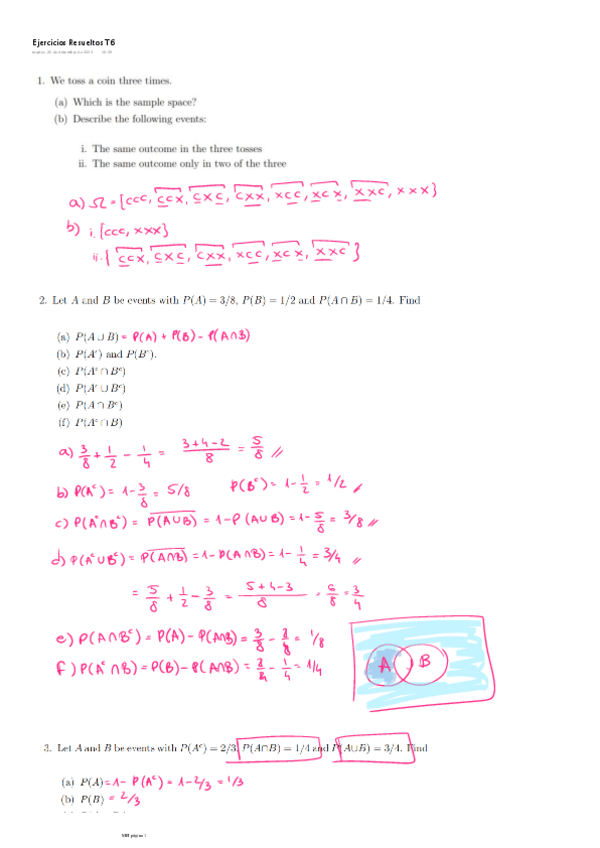 Ejercicios Resueltos T6
1. We toss a coin three times.
(a) Which is the sample space?
(b) Describe the following events:
i. The same outcome in the three tosses
ii. The same outcome only in two of the three
a) Ω = {ccc, ccx, cxc, cxx, xcc, xcx, xxc, xxx}
b) i. {ccc, xxx}
ii. { ccx, cxc, cxx, xcc, xcx, xxc }
2. Let A and B be events with P(A) = 3/8, P(B) = 1/2 and P(A ∩ B) = 1/4. Find
(a) P(A ∪ B) = P(A) + P(B) - P(A∩B)
(b) P(Aᶜ) and P(Bᶜ).
(c) P(Aᶜ ∩ Bᶜ)
(d) P(Aᶜ ∪ Bᶜ)
(e) P(A ∩ Bᶜ)
(f) P(Aᶜ ∩ B)
a) 3/8 + 1/2 - 1/4 = (3+4-2)/8 = 5/8 //
b) P(Aᶜ) = 1 - 3/8 = 5/8 P(Bᶜ) = 1 - 1/2 = 1/2
c) P(Aᶜ∩Bᶜ) = P(A∪B)‾ = 1 - P(A∪B) = 1 - 5/8 = 3/8 //
d) P(Aᶜ∪Bᶜ) = P(A∩B)‾ = 1 - P(A∩B) = 1 - 1/4 = 3/4 //
= 5/8 + 1/2 - 3/8 = (5+4-3)/8 = 6/8 = 3/4
e) P(A∩Bᶜ) = P(A) - P(A∩B) = 3/8 - 2/8 = 1/8
f) P(Aᶜ∩B) = P(B) - P(A∩B) = 2/4 - 1/4 = 1/4
A B
3. Let A and B be events with P(Aᶜ) = 2/3, P(A∩B) = 1/4 and P(A∪B) = 3/4. Find
(a) P(A) = 1 - P(Aᶜ) = 1 - 2/3 = 1/3
(b) P(B) = 2/3